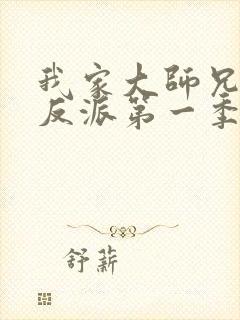 我家大师兄
反派第一季
舒薪